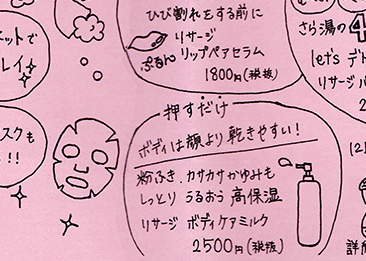 ひび割れをする前に
リサージ
ぷるん リップペアセラム
1800円(税抜)
ットで
レイ
さら湯の4
let's デト
リサージ
2
押すだけ
ボディは顔より乾きやすい！
粉ふき、カサカサかゆみも
しっとり うるおう 高保湿
リサージ ボディケアミルク
2500円(税抜)
スクも
!!
12
詳